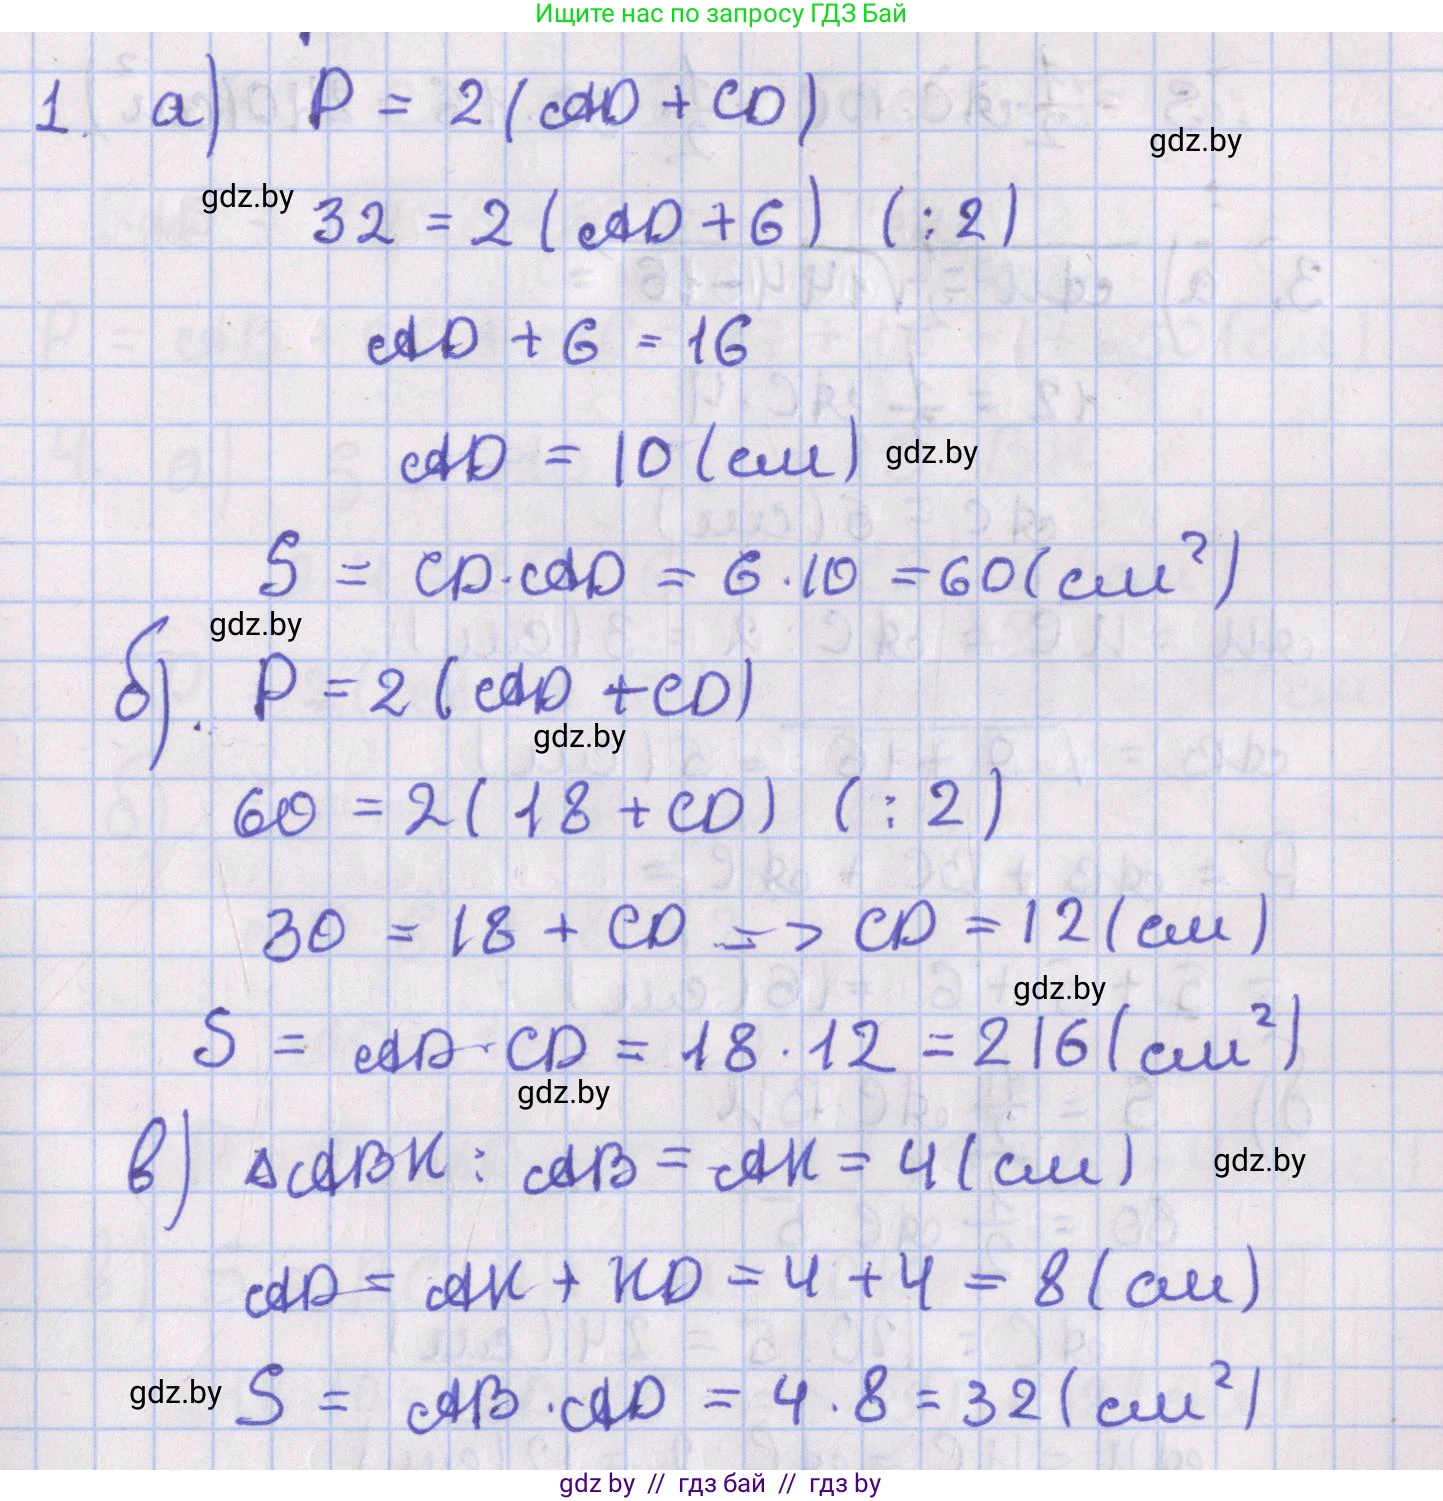 Ищите нас по запросу ГДЗ Бай
1. а) P = 2(AD + CD)
gdz.by
gdz.by
32 = 2(AD + 6) (:2)
AD + 6 = 16
AD = 10 (см) gdz.by
S = CD · AD = 6 · 10 = 60 (см²)
gdz.by
б). P = 2(AD + CD)
gdz.by
60 = 2(18 + CD) (:2)
30 = 18 + CD => CD = 12 (см)
gdz.by
S = AD · CD = 18 · 12 = 216 (см²)
gdz.by
в) ΔABK: AB = AK = 4 (см) gdz.by
AD = AK + KD = 4 + 4 = 8 (см)
gdz.by S = AB · AD = 4 · 8 = 32 (см²)
gdz.by // гдз бай // гдз by